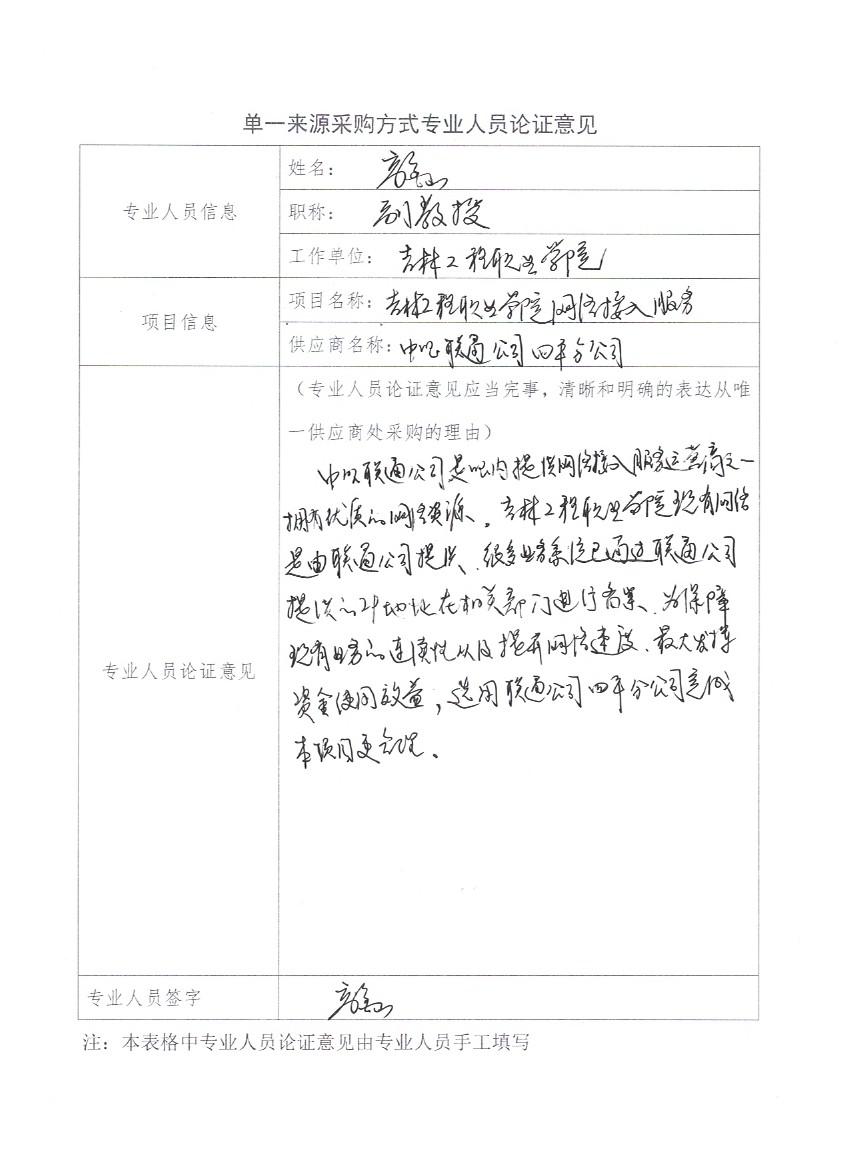 单一来源采购方式专业人员论证意见
专业人员信息
姓名：
职称： 副教授
工作单位： 吉林工程职业学院
项目信息
项目名称：吉林工程职业学院网络接入服务
供应商名称：中国联通公司四平分公司
专业人员论证意见
（专业人员论证意见应当完事，清晰和明确的表达从唯
一供应商处采购的理由）
中国联通公司是国内提供网络接入服务运营商之一
拥有优质的网络资源。吉林工程职业学院现有网络
是由联通公司提供、很多业务系统已通过联通公司
提供的IP地址在相关部门进行备案、为保障
现有业务的连续性以及提高网络速度、最大发挥
资金使用效益，选用联通公司四平分公司完成
本项目更合理。
专业人员签字
注：本表格中专业人员论证意见由专业人员手工填写